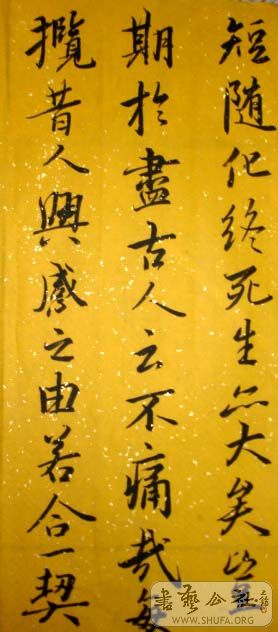 短随化終死生亦大矣豈
期於盡古人云不痛哉每
攬昔人興感之由若合一契
書藝公社
WWW.SHUFA.ORG